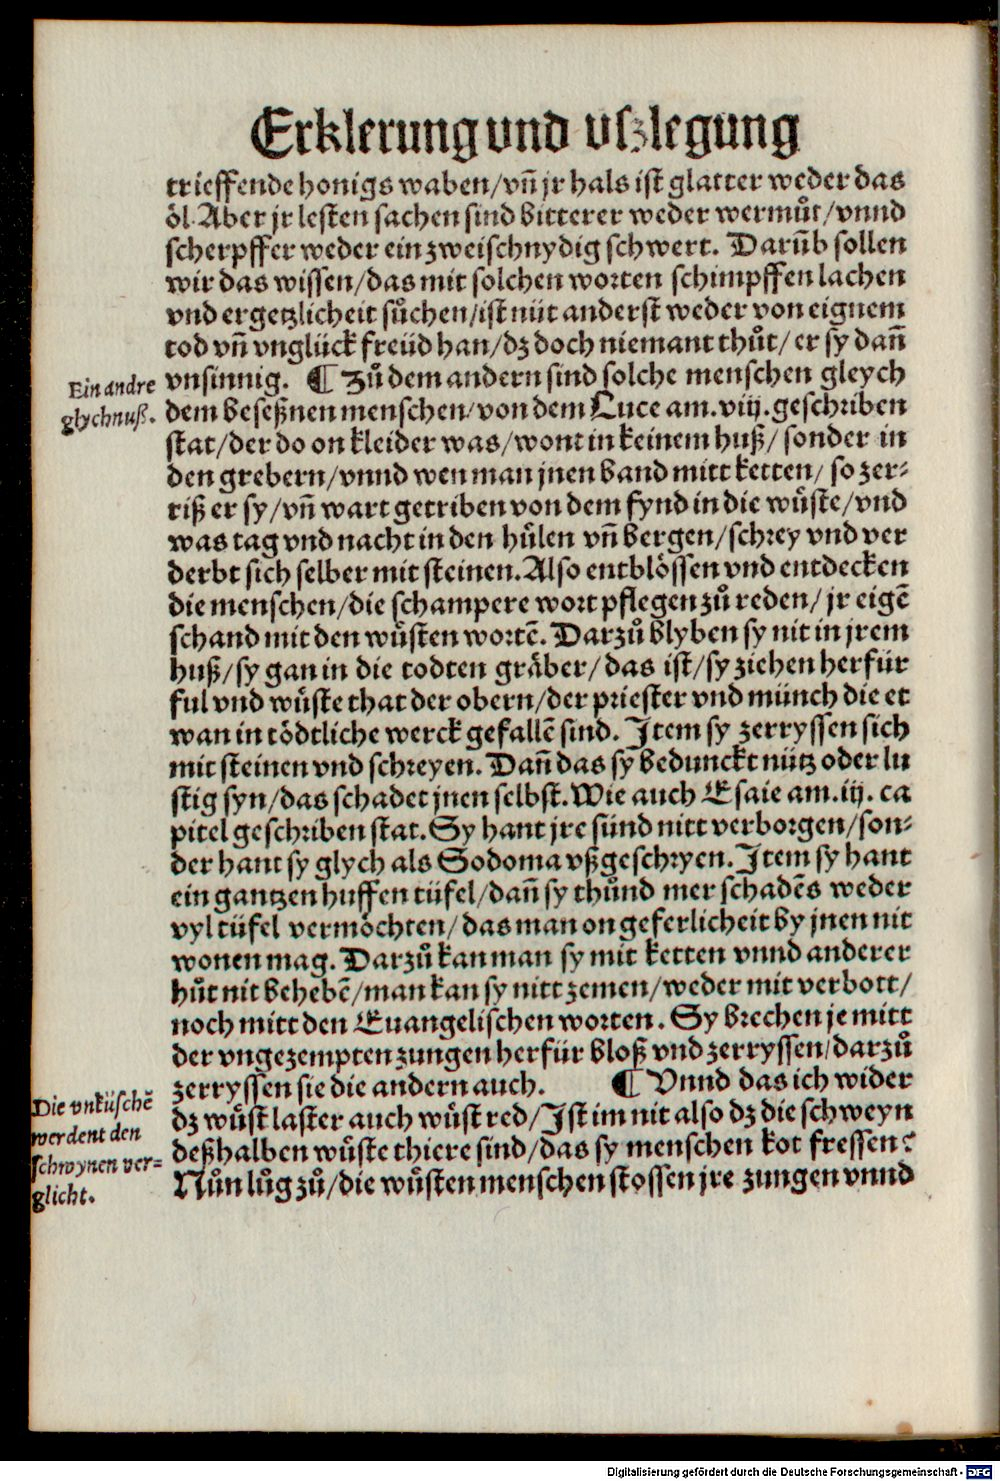 Erklerung vnd vſzlegung
trieffende honigs waben/vñ jr hals iſt glatter weder das
öl. Aber jr leſten ſachen ſind bitterer weder wermůt/vnnd
ſcherpffer weder ein zweiſchnydig ſchwert. Darūb ſollen
wir das wiſſen/das mit ſolchen worten ſchimpffen lachen
vnd ergetzlicheit ſůchen/iſt nüt anderſt weder von eignem
tod vñ vnglück freüd han/dz doch niemant thůt/er ſy dañ
Ein andre
glychnuß.
vnſinnig. ¶ Zů dem andern ſind ſolche menſchen gleych
dem beſeßnen menſchen/von dem Luce am.viij.geſchriben
ſtat/der do on kleider was/wont in keinem huß/ſonder in
den grebern/vnnd wen man jnen band mitt ketten/ſo zer⸗
riß er ſy/vñ wart getriben von dem fynd in die wůſte/vnd
was tag vnd nacht in den hůlen vñ bergen/ſchrey vnd ver
derbt ſich ſelber mit ſteinen. Alſo entblöſſen vnd entdecken
die menſchen/die ſchampere wort pflegen zů reden/jr eigē
ſchand mit den wůſten wortē. Darzů blyben ſy nit in jrem
huß/ſy gan in die todten gräber/das iſt/ſy ziehen herfür
ful vnd wůſte that der obern/der prieſter vnd münch die et
wan in tödtliche werck gefallē ſind. Item ſy zerryſſen ſich
mit ſteinen vnd ſchreyen. Dañ das ſy bedunckt nütz oder lu
ſtig ſyn/das ſchadet jnen ſelbſt. Wie auch Eſaie am.iij.ca
pitel geſchriben ſtat. Sy hant jre ſünd nitt verborgen/ſon⸗
der hant ſy glych als Sodoma vßgeſchryen. Item ſy hant
ein gantzen huffen tüfel/dañ ſy thůnd mer ſchadēs weder
vyl tüfel vermöchten/das man on geferlicheit by jnen nit
wonen mag. Darzů kan man ſy mit ketten vnnd anderer
hůt nit behebē/man kan ſy nitt zemen/weder mit verbott/
noch mitt den Euangeliſchen worten. Sy brechen je mitt
der vngezempten zungen herfür bloß vnd zerryſſen/darzů
zerryſſen ſie die andern auch. ¶ Vnnd das ich wider
Die vnküſchē
werdent den
ſchwynen ver⸗
glicht.
dz wůſt laſter auch wůſt red/Iſt im nit alſo dz die ſchweyn
deßhalben wůſte thiere ſind/das ſy menſchen kot freſſen?
Nůn lůg zů/die wůſten menſchen ſtoſſen jre zungen vnnd
Digitalisierung gefördert durch die Deutsche Forschungsgemeinschaft - DFG